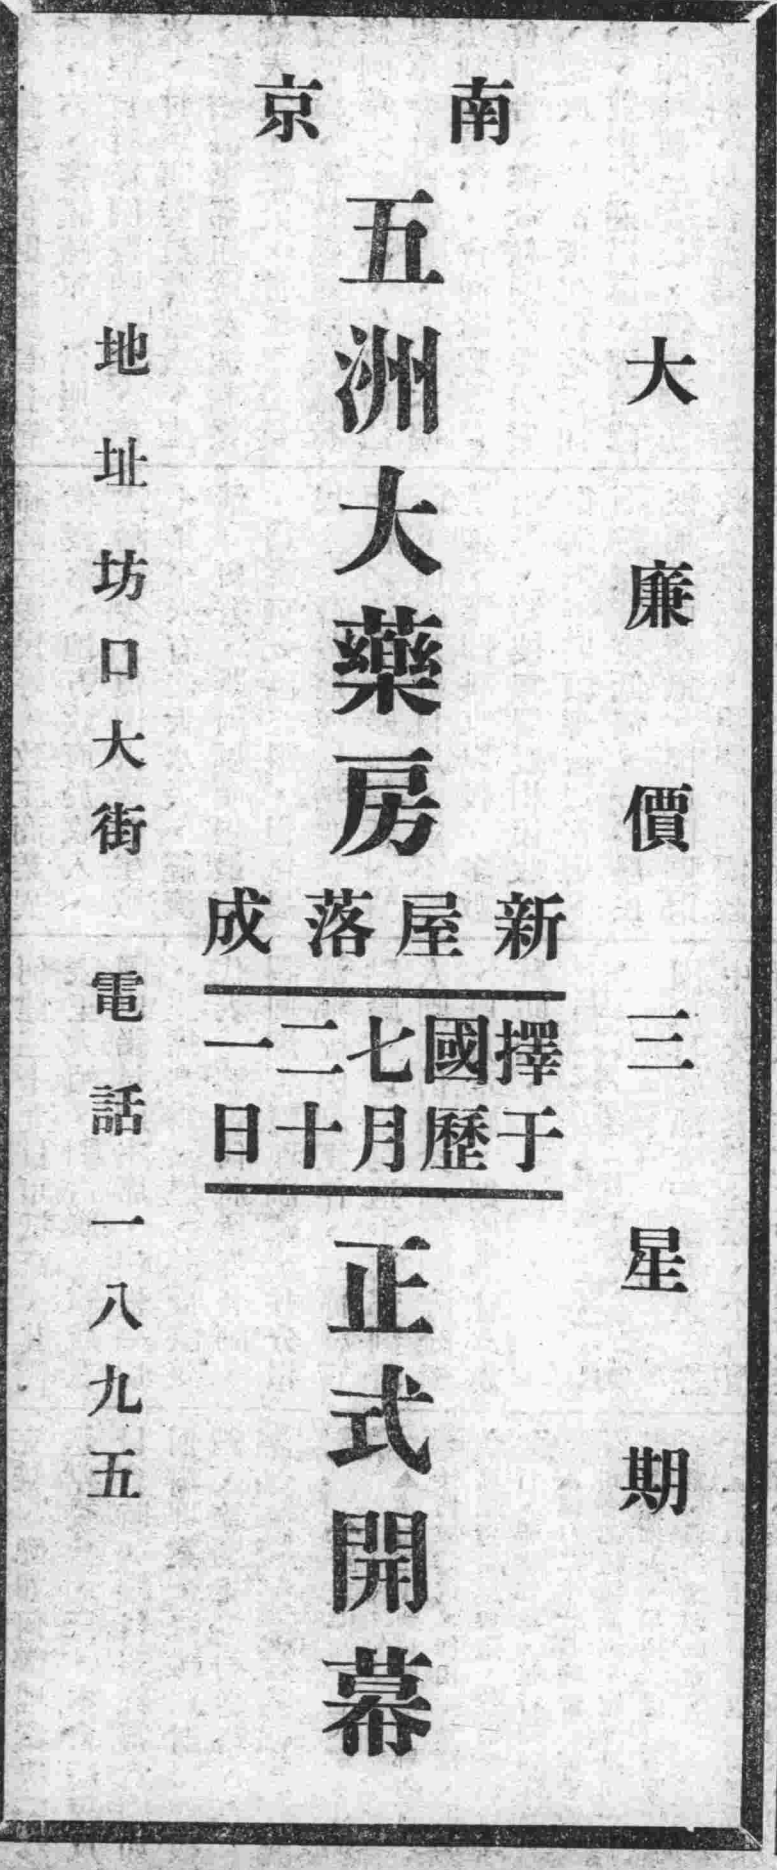 大廉價三星期
南京
五洲大藥房
新屋落成
擇于國歷七月二十一日
正式開幕
地址坊口大街 電話一八九五